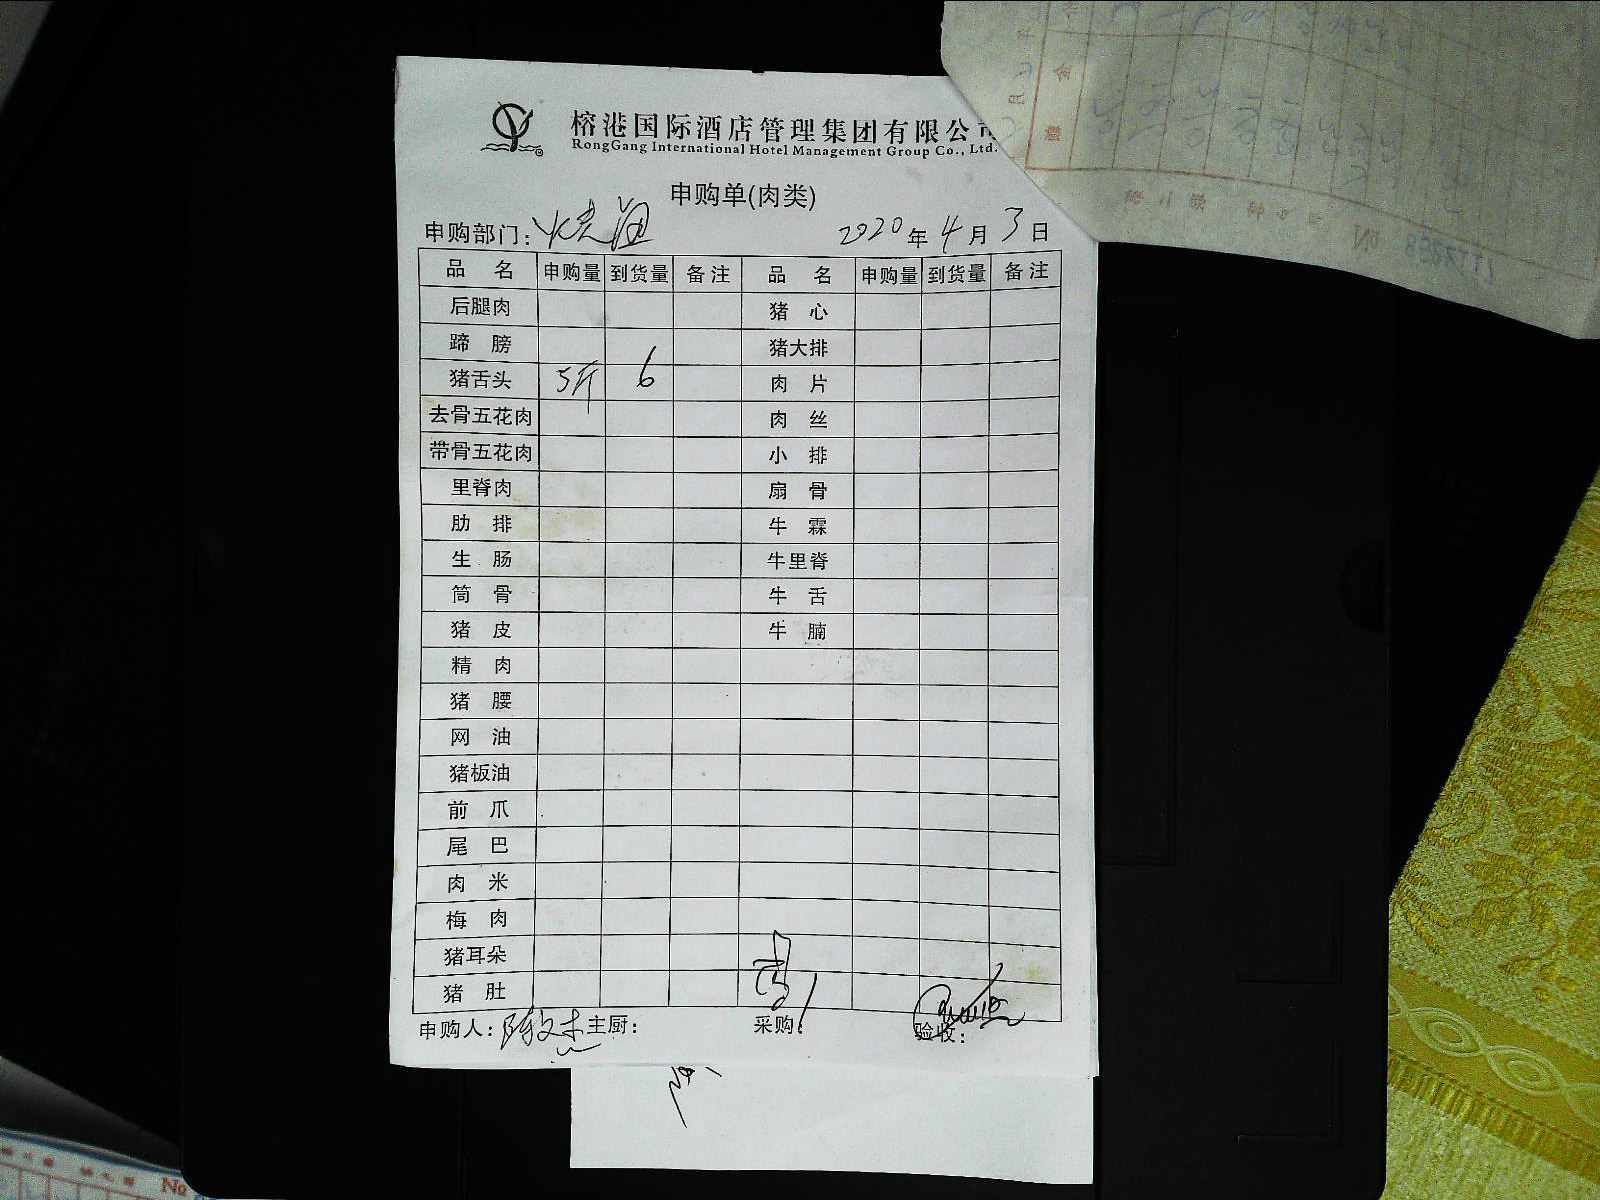 榕港国际酒店管理集团有限公司
RongGang International Hotel Management Group Co., Ltd.
申购单(肉类)
申购部门: 2020年4月3日
品 名 申购量 到货量 备注 品 名 申购量 到货量 备注
后腿肉 猪 心
蹄 膀 猪大排
猪舌头 5斤 6 肉 片
去骨五花肉 肉 丝
带骨五花肉 小 排
里脊肉 扇 骨
肋 排 牛 霖
生 肠 牛里脊
筒 骨 牛 舌
猪 皮 牛 腩
精 肉
猪 腰
网 油
猪板油
前 爪
尾 巴
肉 米
梅 肉
猪耳朵
猪 肚
申购人: 陈文杰 主厨: 采购: 验收:
No